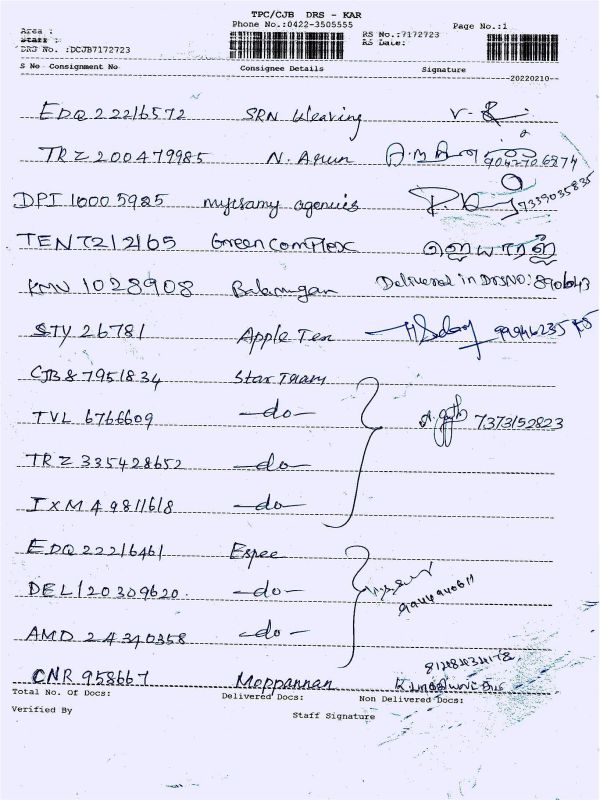 TPC/CJB DRS - KAR
Phone No.:0422-3505555
Page No.:1
Area :
Staff :
DRS No. :DCJB7172723
RS No.:7172723
RS Date:
S No Consignment No Consignee Details Signature
20220210
EDQ 22216572 SRN Weaving
TRZ 200479985 N. Arun 9042706874
DPI 10005985 myisamy agencies 7339035835
TEN 7212165 Green complex
KMU 1028908 Balamugan Delivered in DRSNO: 8906043
STY 26781 Apple Tex
CJB 87951834 Star Tuary
TVL 6766609 -do- 7373152823
TRZ 335428652 -do-
IXM 49811618 -do-
EDQ 22216461 Espee
DEL 120309620 -do- 9944940611
AMD 24340358 -do-
CNR 958667 Moppannan
Total No. Of Docs: Delivered Docs: Non Delivered Docs:
Verified By Staff Signature